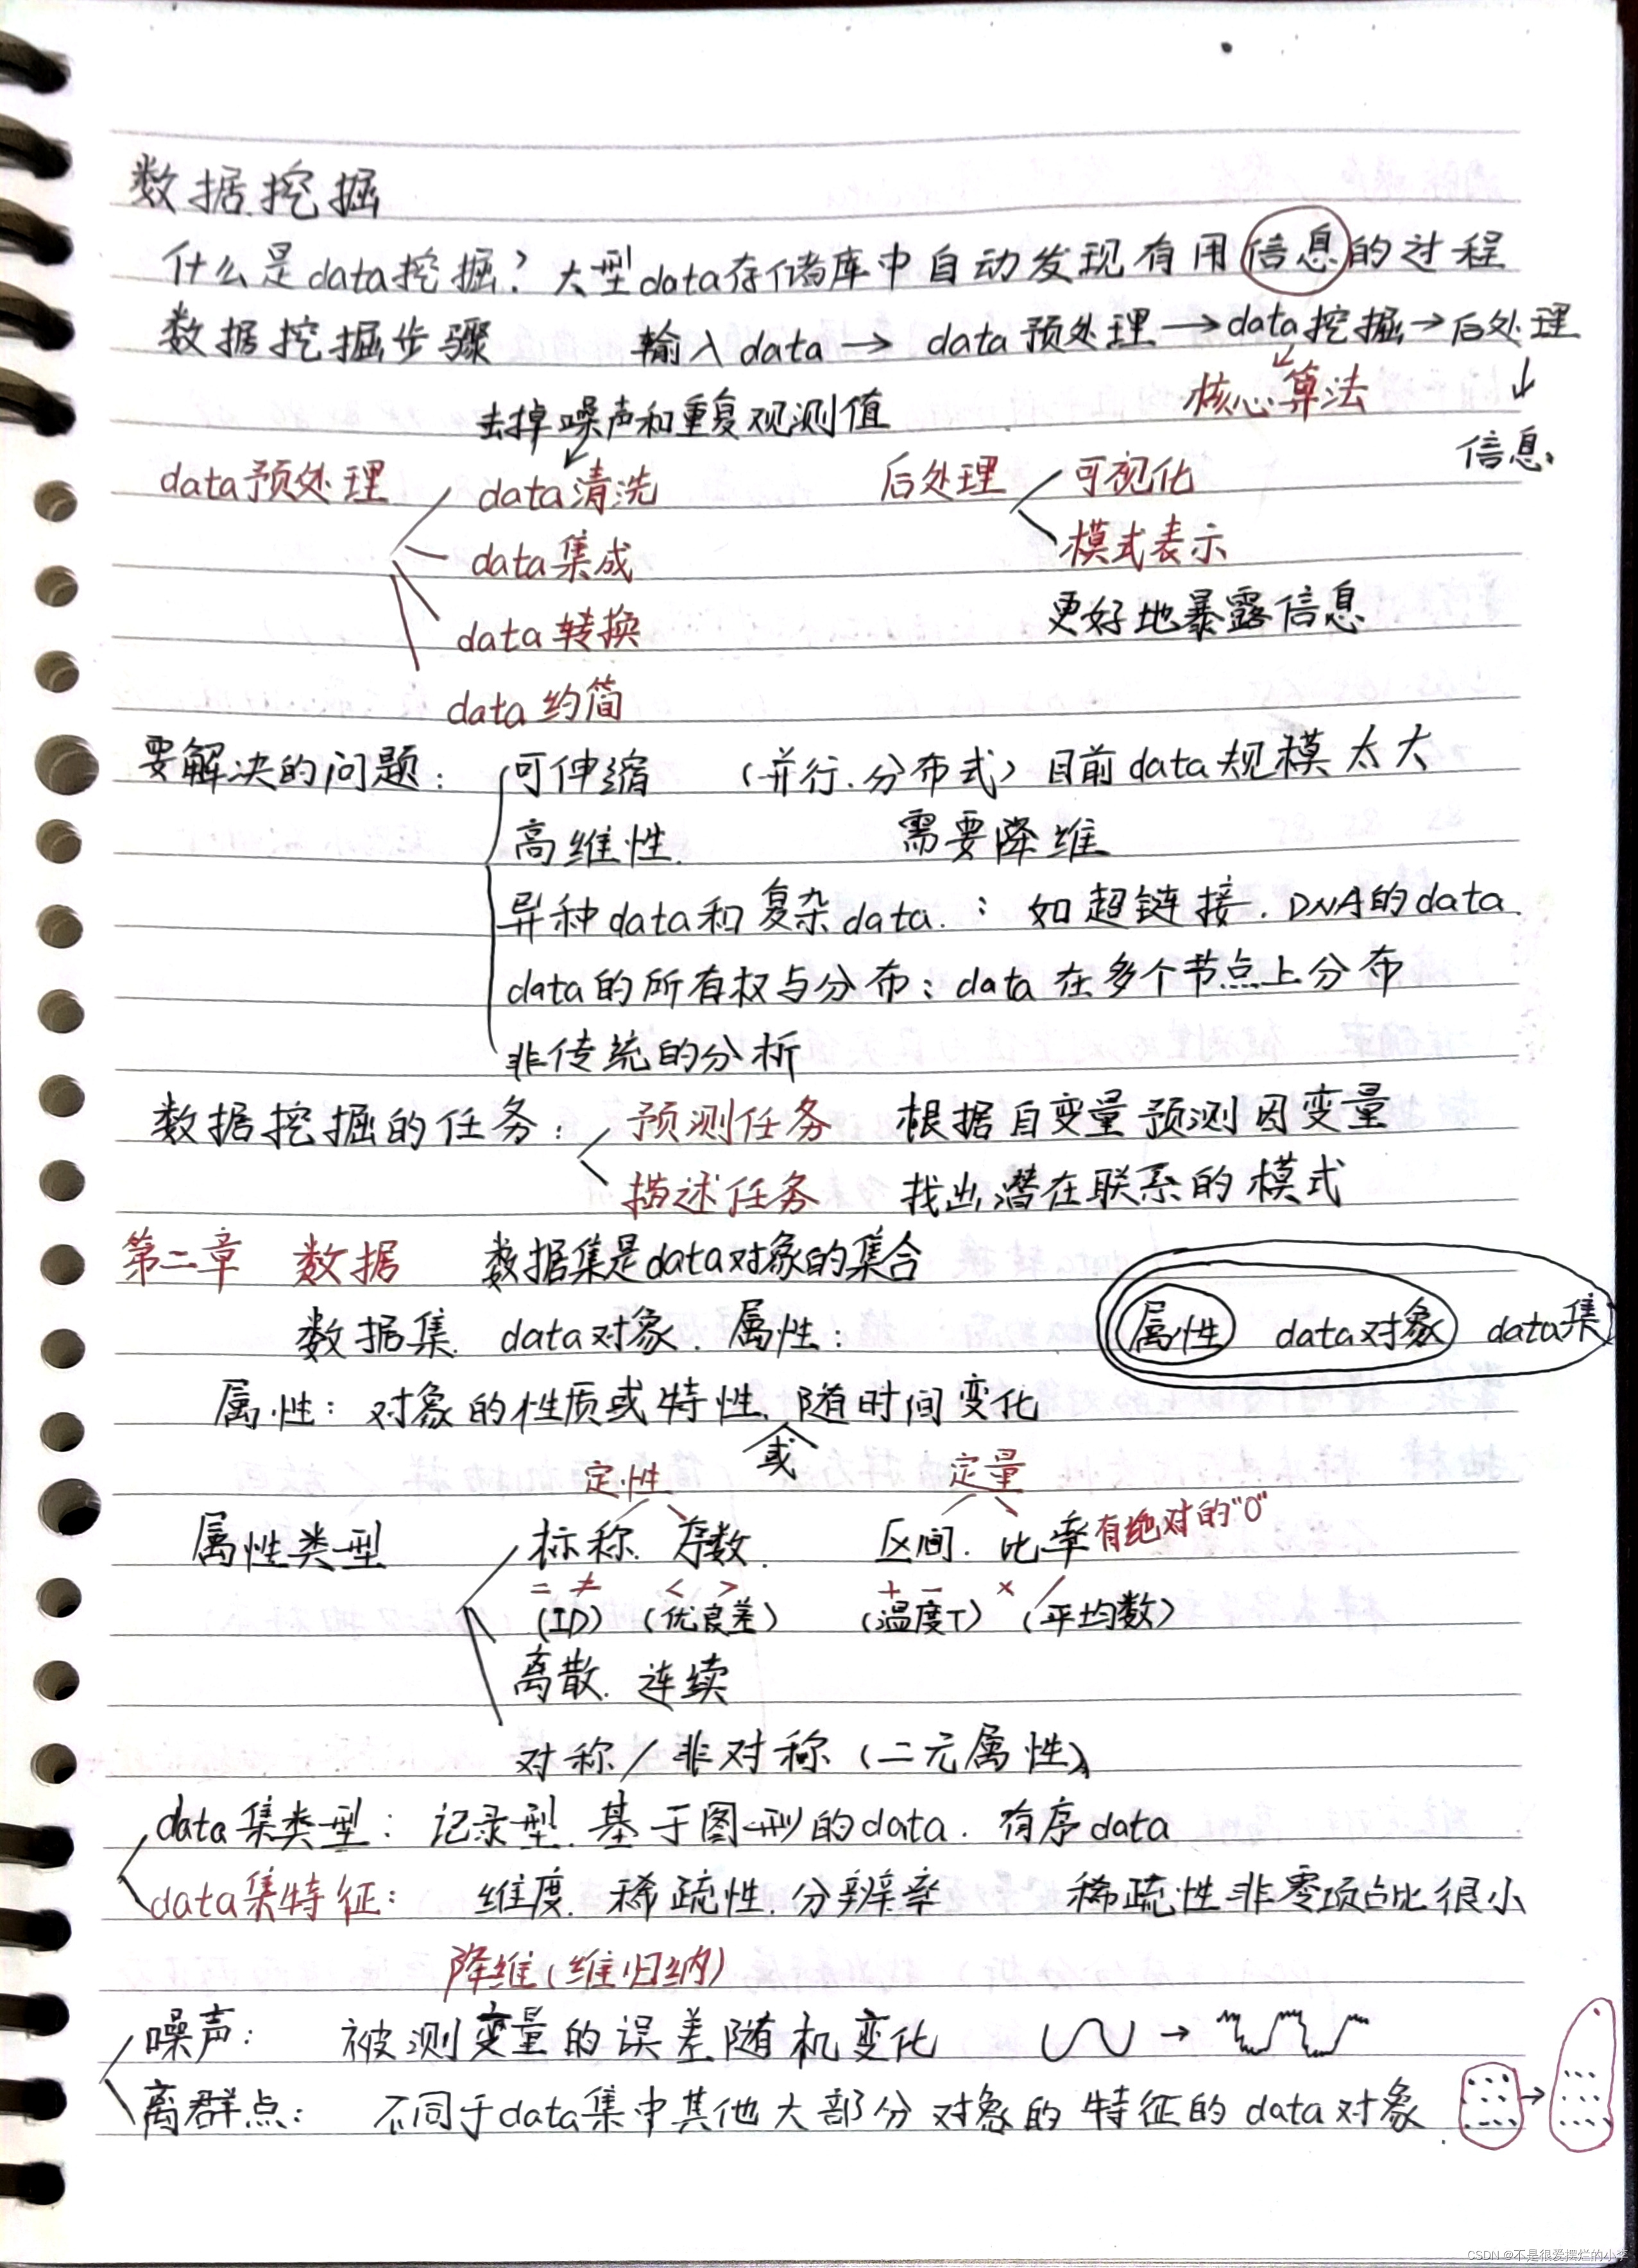 数据挖掘
什么是data挖掘? 大型data存储库中自动发现有用信息的过程
数据挖掘步骤 输入data → data预处理 → data挖掘 → 后处理
核心算法 ↓
去掉噪声和重复观测值
信息.
data预处理 data清洗 后处理 可视化
data集成 模式表示
data转换 更好地暴露信息.
data约简
要解决的问题: 可伸缩 (并行.分布式) 目前data规模太大
高维性. 需要降维
异种data和复杂data. : 如超链接. DNA的data.
data的所有权与分布: data在多个节点上分布
非传统的分析
数据挖掘的任务: 预测任务 根据自变量预测因变量
描述任务 找出潜在联系的模式
第二章 数据 数据集是data对象的集合
数据集. data对象. 属性: 属性 data对象 data集
属性: 对象的性质或特性. 随时间变化
或
定性 定量
属性类型 标称. 序数. 区间. 比率 有绝对的"0"
= ≠ < > + - × /
(ID) (优良差) (温度T) (平均数)
离散. 连续
对称/非对称 (二元属性)
data集类型: 记录型. 基于图形的data. 有序data
data集特征: 维度. 稀疏性. 分辨率 稀疏性非零项占比很小
降维(维归纳)
噪声: 被测变量的误差随机变化 →
离群点: 不同于data集中其他大部分对象的特征的data对象. →
CSDN @不是很爱摆烂的小李